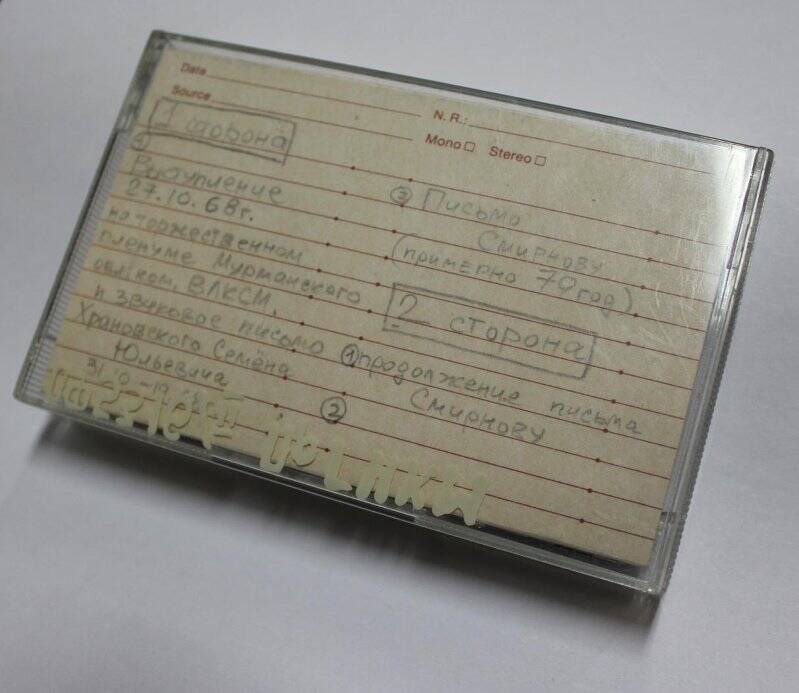 Date
Source
N. R.:
Mono Stereo
1 сторона
①
Выступление
27.10.68г.
на торжественном
пленуме Мурманского
обкома, ВЛКСМ,
и звуковое письмо
Храновского Семёна
Юльевича
②
③ Письмо
Смирнову
(примерно 70 год)
2 сторона
① продолжение письма
Смирнову